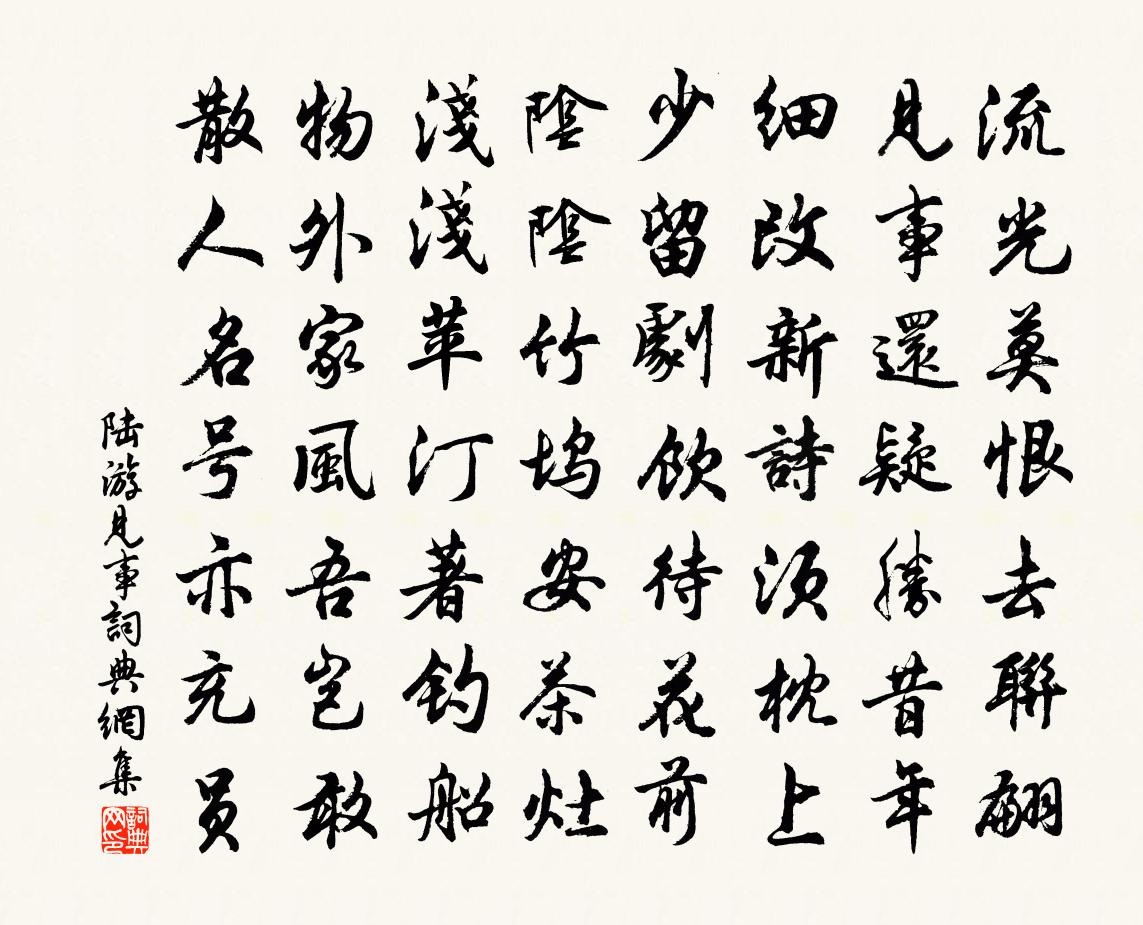 流光莫恨去聯翩
見事還疑勝昔年
细改新詩須枕上
少留劇飲待花前
陰陰竹坞安茶灶
淺淺苹汀著釣船
物外家風吾岂敢
散人名号亦充员
陆游見事詞典網集
詞典網印